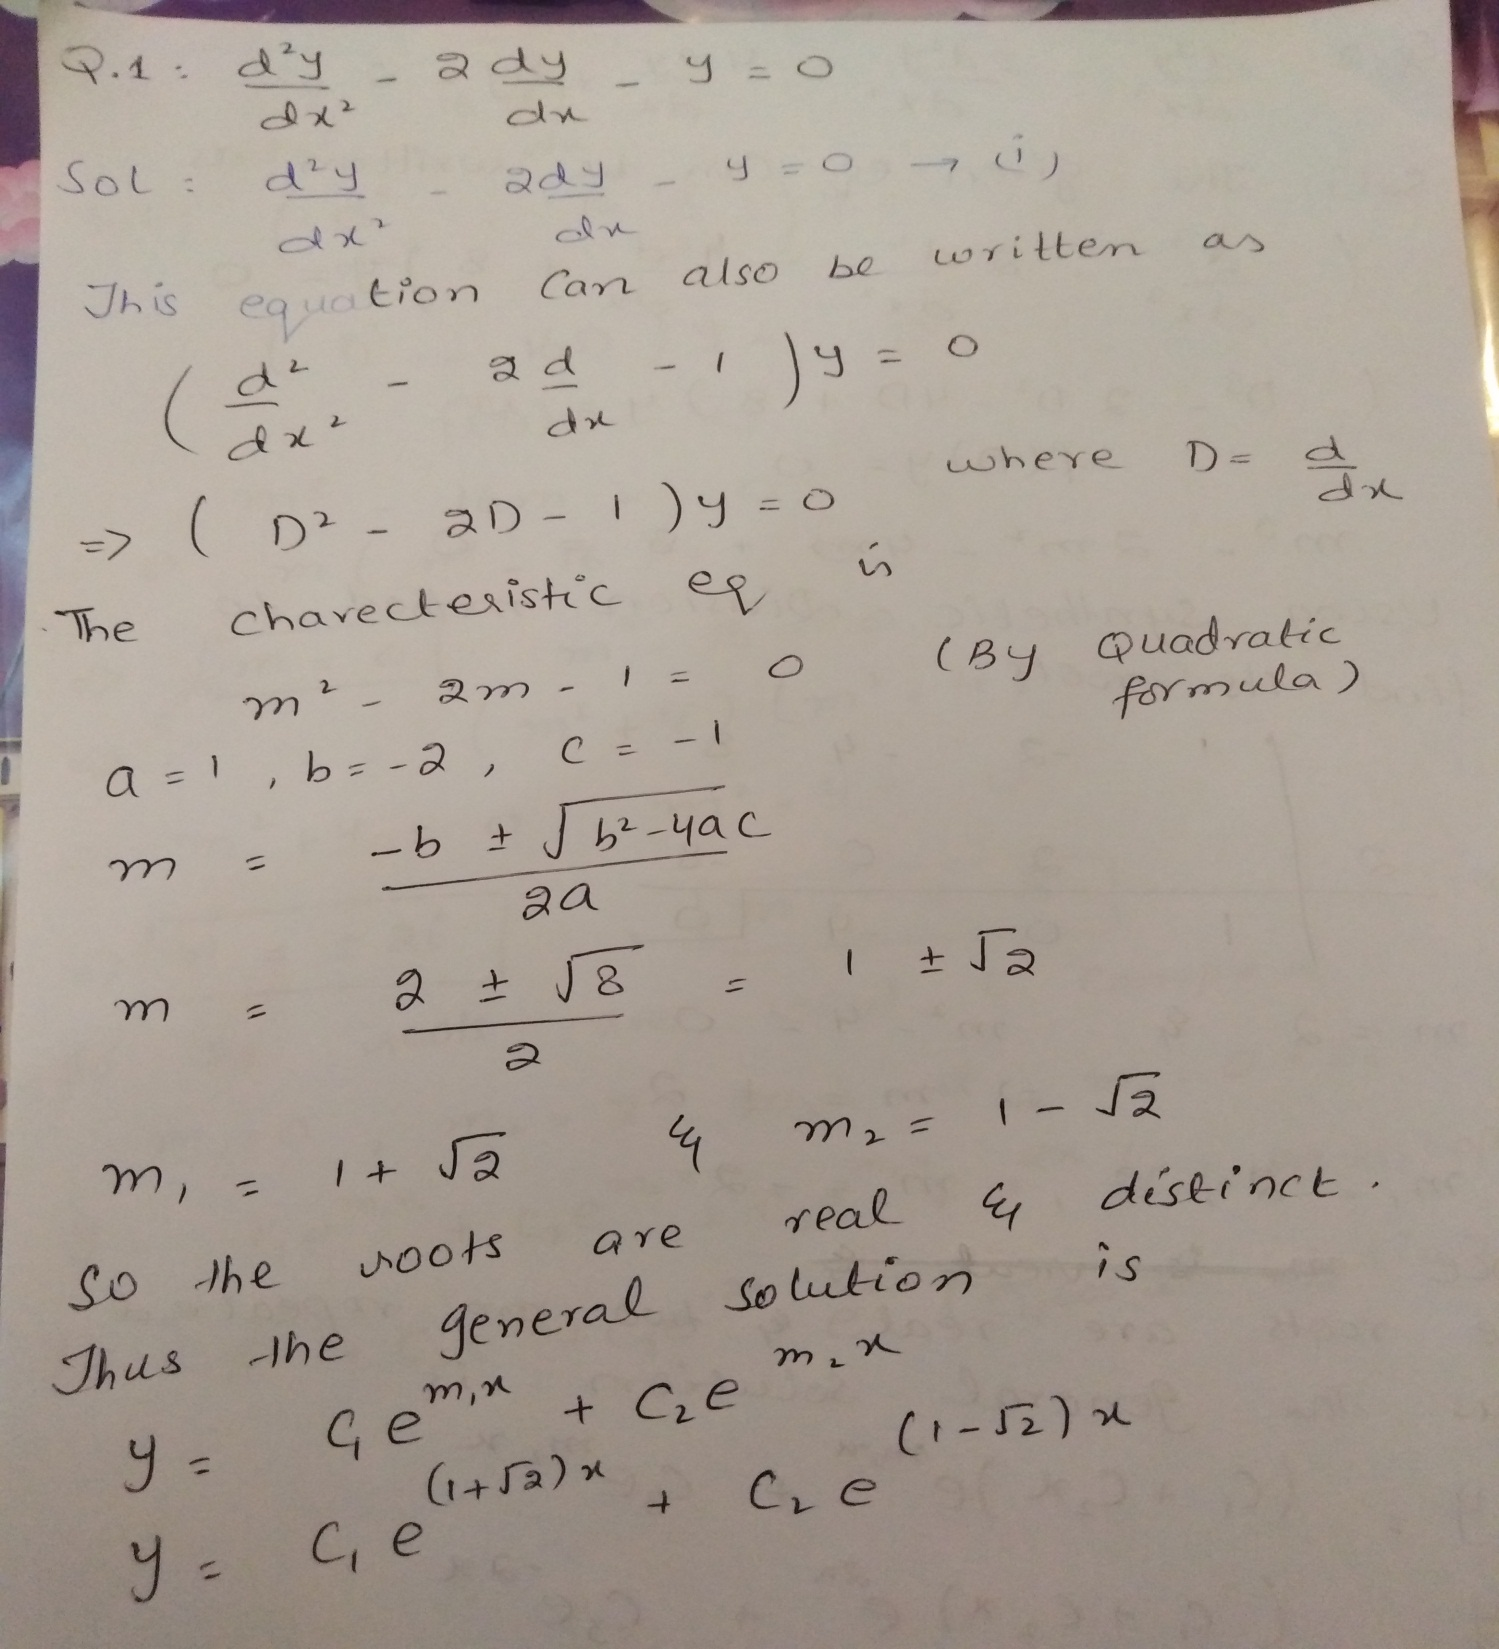 Q.1: d²y/dx² - 2 dy/dx - y = 0
Sol: d²y/dx² - 2dy/dx - y = 0 → (i)
This equation can also be written as
( d²/dx² - 2 d/dx - 1 ) y = 0
=> ( D² - 2D - 1 ) y = 0 where D = d/dx
The charecteristic eq is
m² - 2m - 1 = 0 (By Quadratic formula)
a = 1, b = -2, c = -1
m = (-b ± √(b²-4ac))/2a
m = (2 ± √8)/2 = 1 ± √2
m₁ = 1 + √2 & m₂ = 1 - √2
So the roots are real & distinct.
Thus the general solution is
y = C₁e^(m₁x) + C₂e^(m₂x)
y = C₁ e^((1+√2)x) + C₂ e^((1-√2)x)